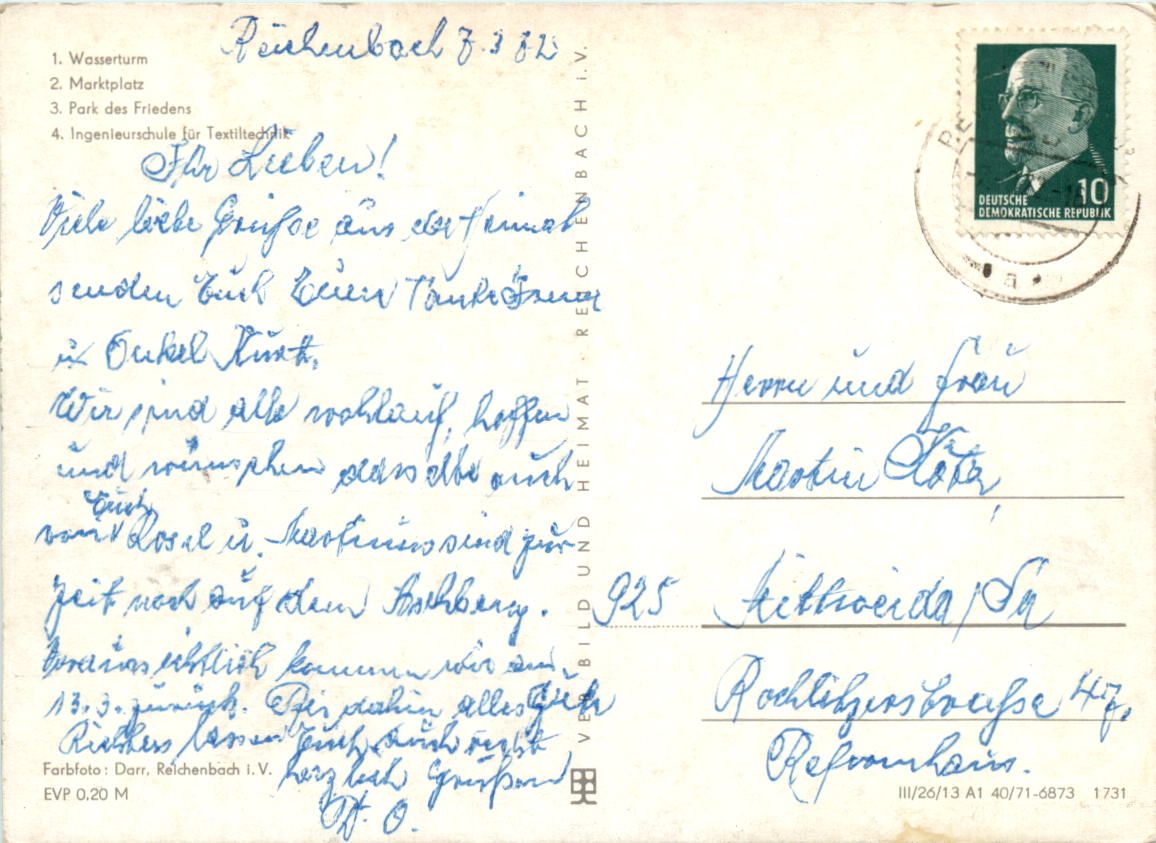 Reichenbach 7.3.72
1. Wasserturm
2. Marktplatz
3. Park des Friedens
4. Ingenieurschule für Textiltechnik
Ihr Lieben!
Viele liebe Grüße aus der Heimat
senden Euch Eure Tante
u. Onkel Kurt.
Wir sind alle wohlauf, hoffen
und wünschen dasselbe auch
von Euch
Rosel u. Martin sind zur
Zeit noch auf dem Aschberg.
Voraussichtlich kommen wir am
13.3. zurück. Bis dahin alles Gute
lassen Euch auch recht
herzlich Grüßen
Farbfoto: Darr, Reichenbach i. V.
EVP 0,20 M
VEB BILD UND HEIMAT · REICHENBACH i. V.
DEUTSCHE
DEMOKRATISCHE REPUBLIK
10
a
Herrn und Frau
Martin
925 Mittweida/Sa
Rochlitzerstraße 47,
Reformhaus.
III/26/13 A1 40/71-6873 1731